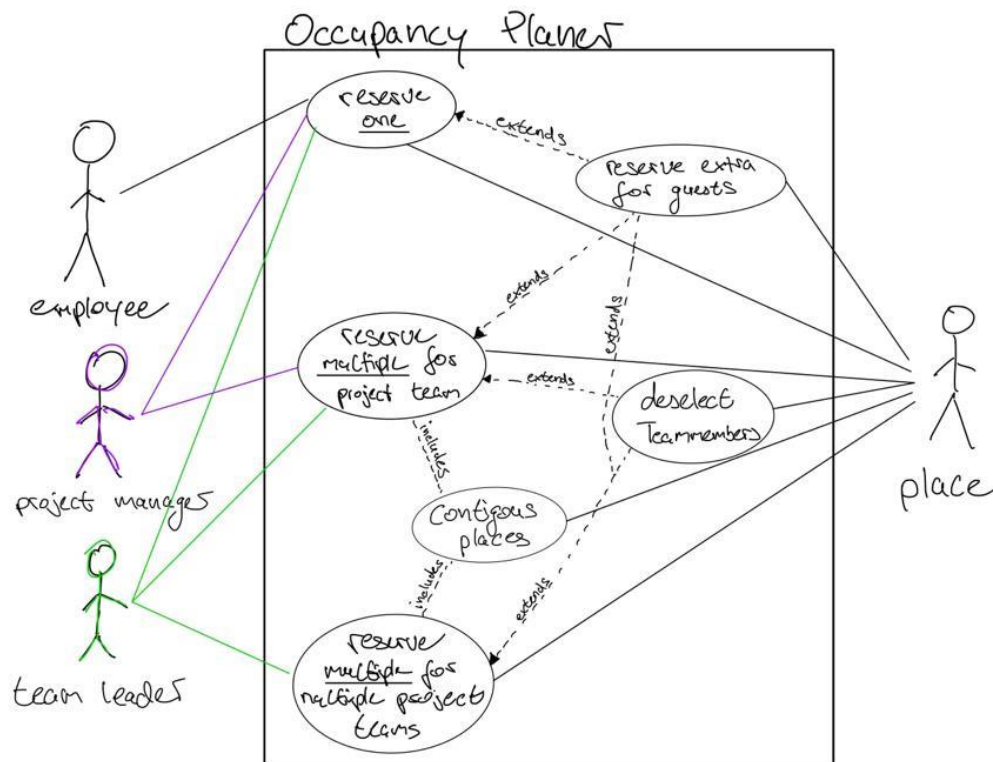 Occupancy Planer
reserve
one
extends
reserve extra
for guests
employee
extends
extends
reserve
multiple for
project team
extends
deselect
Teammembers
project manager
includes
place
contigous
places
includes
extends
team leader
reserve
multiple for
multiple project
teams